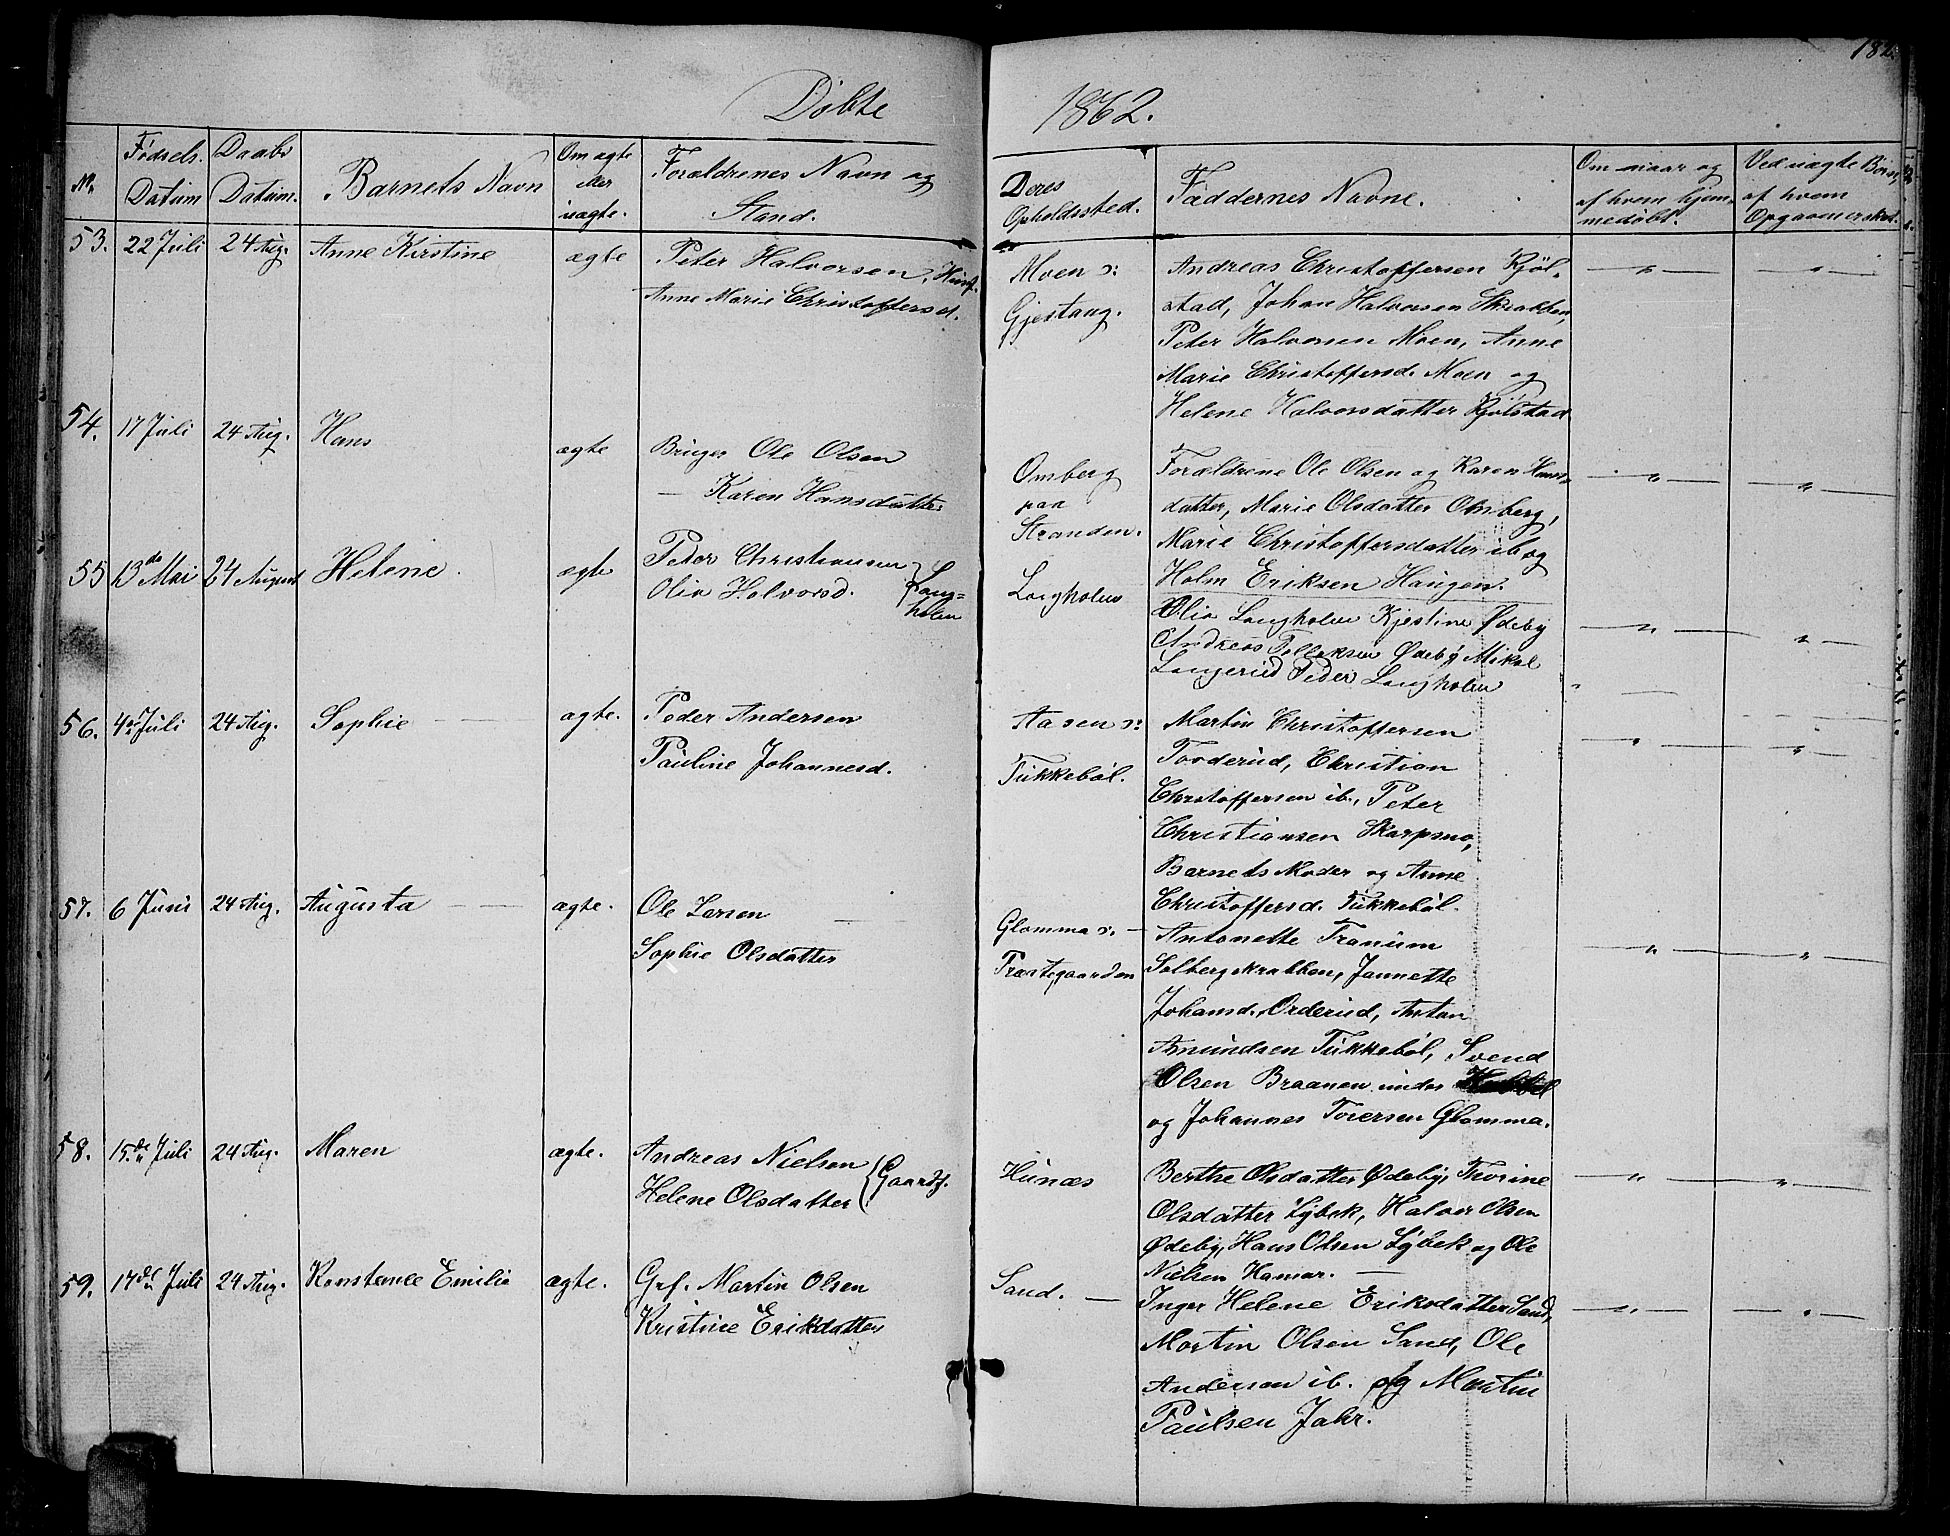 182.
Døbte 1862.
No.
Fødsels Datum
Daabs Datum.
Barnets Navn
Om ægte eller uægte.
Forældrenes Navn og Stand.
Deres Opholdssted.
Faddernes Navne.
Om naar og af hvem hjem- medøbt.
Ved uægte Børn, af hvem Opgaven er skeet.
53. 22 Juli 24 Aug. Anne Kirstine ægte Peter Halvorsen, Husf.
Anne Marie Christoffersd.
Moen u:
Gjestang.
Andreas Christoffersen Kjøl-
stad, Johan Halvorsen Skrabben,
Peter Halvorsen Moen, Anne
Marie Christoffersd. Moen og
Helene Halvorsdatter Kjølstad
54. 17 Juli 24 Aug. Hans ægte Bruger Ole Olsen
— Karen Hansdatter
Omberg
paa
Stranden.
Forældrene Ole Olsen og Karen Hans-
datter, Marie Olsdatter Omberg,
Marie Christoffersdatter ib og
Holm Eriksen Haugen.
55 13de Mai 24 August Helene. ægte Peder Christiansen
Olia Halvorsd. Lang=
holen
Langholen
Olia Langholen Kjestine Ødeby
Andreas Tollefsen Ødeby Mikal
Langerud Peder Langholen
56. 4de Juli 24 Aug. Sophie ægte. Peder Andersen
Pauline Johannesd.
Aasen u:
Tukkebøl.
Martin Christoffersen
Torderud, Christian
Christoffersen ib., Peter
Christiansen Skarpsno,
Barnets Moder og Anne
Christoffersd. Tukkebøl.
57. 6 Juni 24 Aug. Augusta ægte. Ole Larsen
Sophie Olsdatter
Glomma u.
Præstegaarden
Antonette Tranum
Solbergskrabben, Jannette
Johansd. Orderud, Anton
Amundsen Tukkebøl, Svend
Olsen Braanen under
og Johannes Toversen Glomma.
58. 15de Juli 24 Aug. Maren ægte. Andreas Nielsen
Helene Olsdatter Gaardf.
Hunæs
Berthe Olsdatter Ødeby, Thorine
Olsdatter Lybek, Halvor Olsen
Ødeby, Hans Olsen Lybek og Ole
Nielsen Hamar.
59. 17de Juli 24 Aug. Konstance Emilie ægte. Grf. Martin Olsen
Kristine Erikdatter
Sand.
Inger Helene Eriksdatter Sand,
Martin Olsen Sand, Ole
Andersen ib. og Martin
Paulsen Jahr.